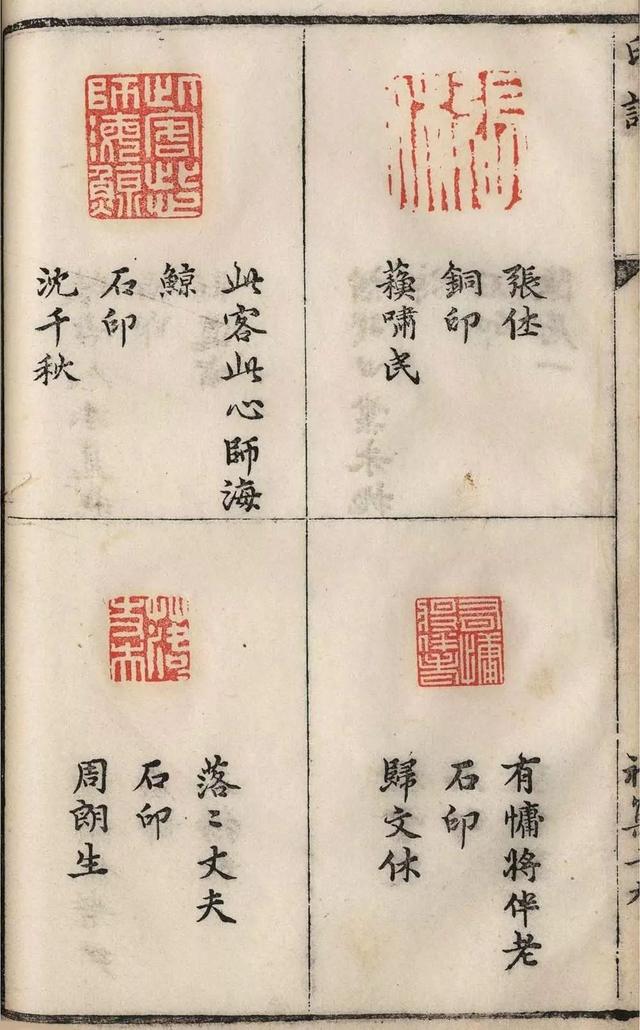 張
銅印
蘓嘯民
此客此心師海
鯨
石印
沈千秋
有慵將伴老
石印
歸文休
落〻丈夫
石印
周朗生